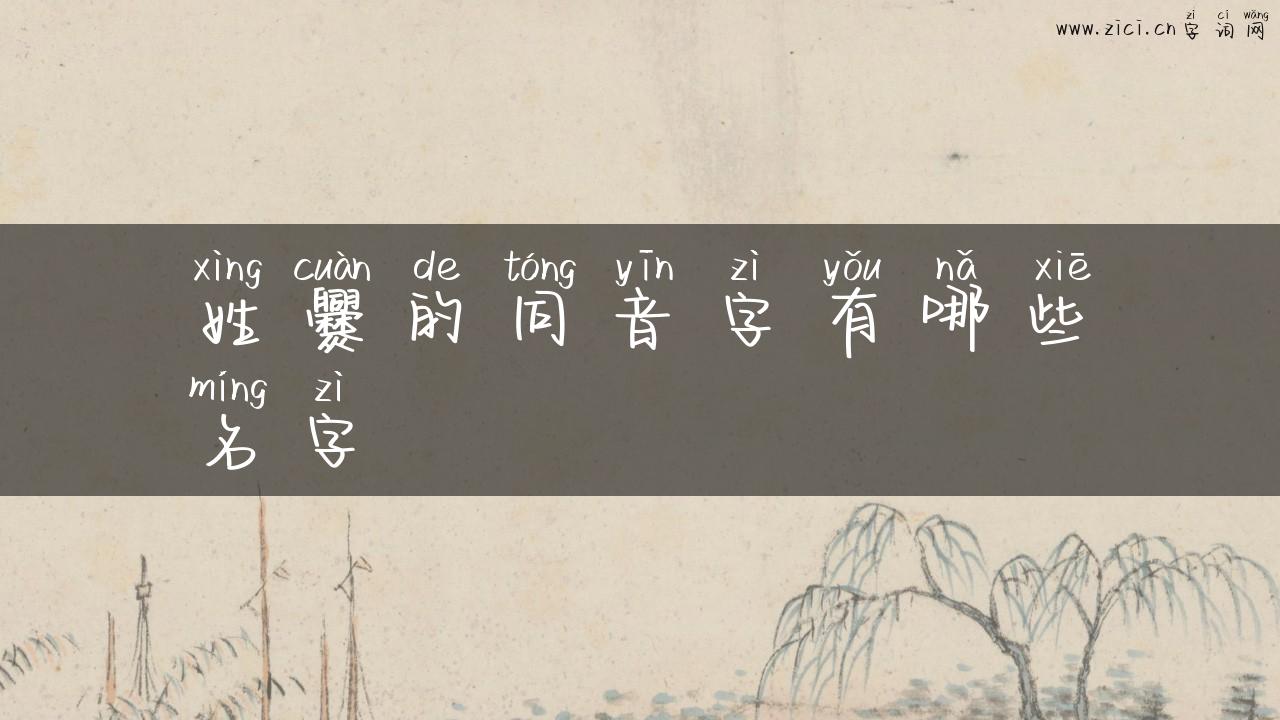 zì cí wǎng
www.zici.cn 字词网
xìng cuàn de tóng yīn zì yǒu nǎ xiē
姓爨的同音字有哪些
míng zì
名字